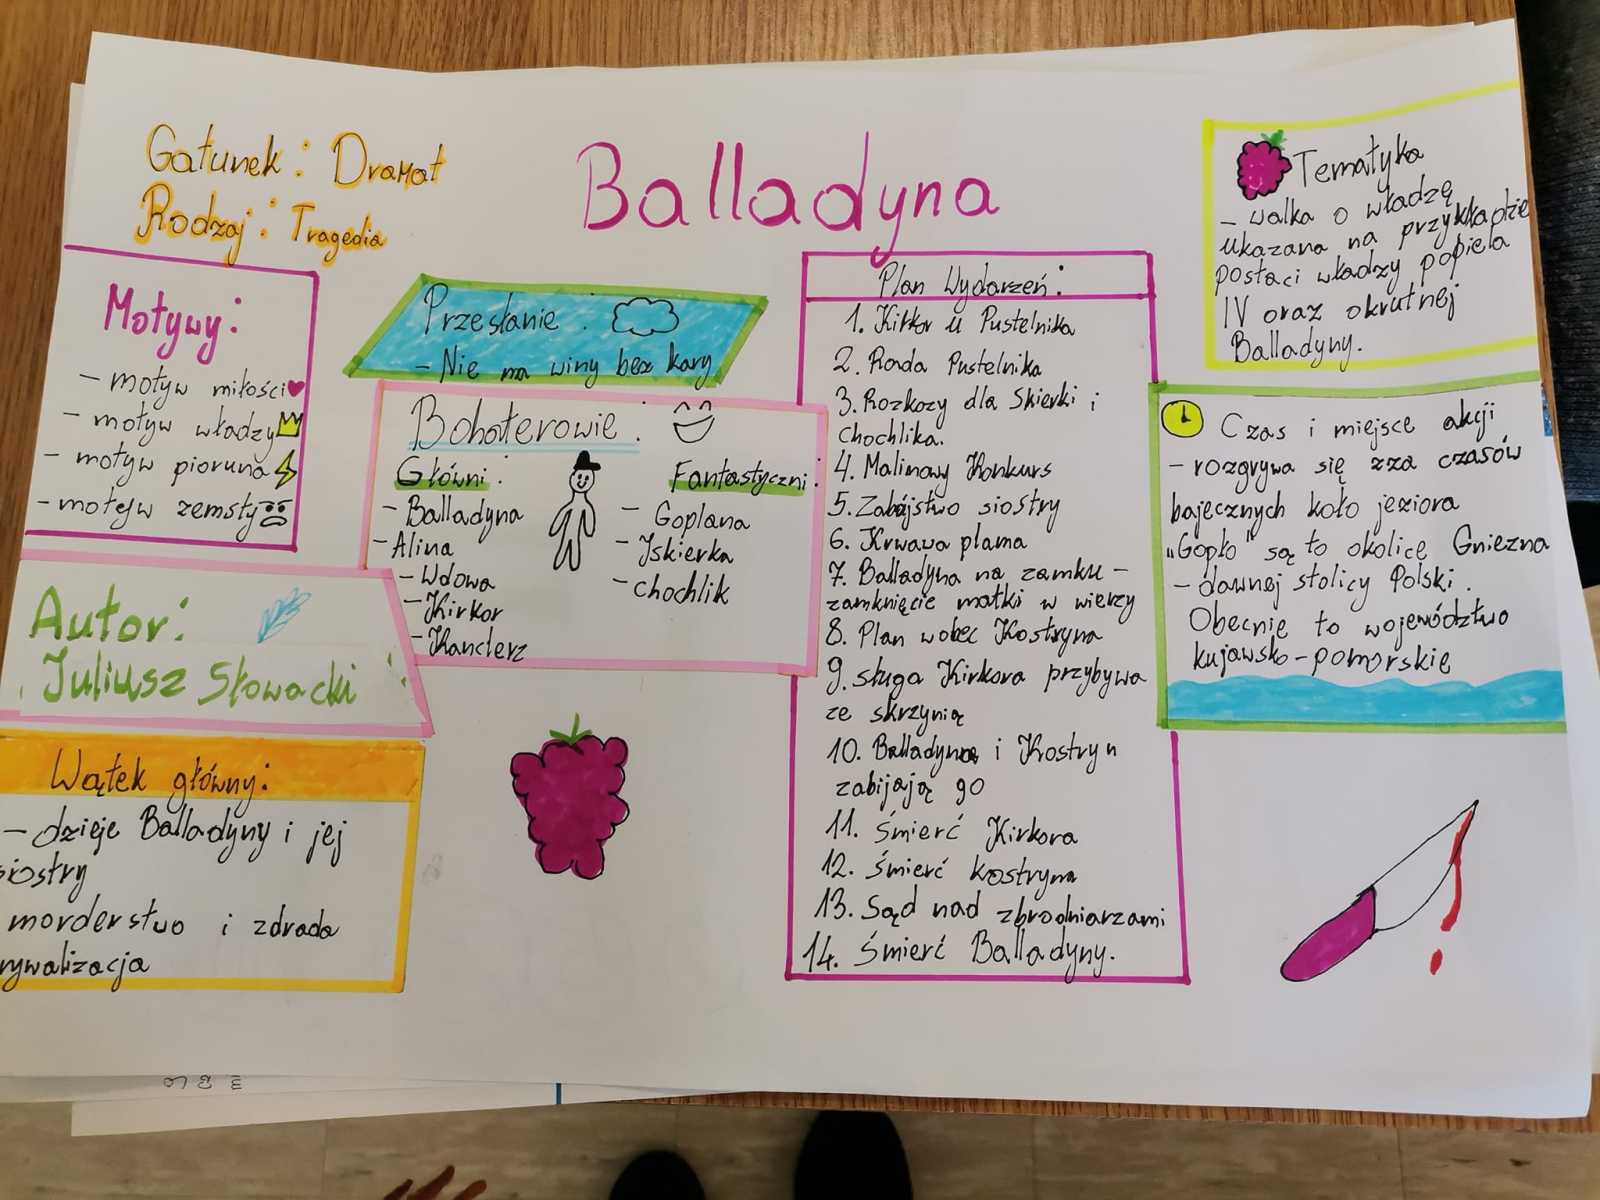 Gatunek: Dramat
Rodzaj: Tragedia
Balladyna
Motywy:
- motyw miłości
- motyw władzy
- motyw pioruna
- motyw zemsty
Autor:
Juliusz Słowacki
Wątek główny:
- dzieje Balladyny i jej
siostry
morderstwo i zdrada
rywalizacja
Przesłanie:
- Nie ma winy bez kary
Bohaterowie:
Główni:
- Balladyna
- Alina
- Wdowa
- Kirkor
- Kanclerz
Fantastyczni:
- Goplana
- Iskierka
- chochlik
Plan Wydarzeń:
1. Kirkor u Pustelnika
2. Rada Pustelnika
3. Rozkazy dla Skierki i
chochlika.
4. Malinowy Konkurs
5. Zabójstwo siostry
6. Krwawa plama
7. Balladyna na zamku -
zamknięcie matki w wierzy
8. Plan wobec Kostryna
9. sługa Kirkora przybywa
ze skrzynią
10. Balladyna i Kostryn
zabijają go
11. Śmierć Kirkora
12. Śmierć kostryna
13. Sąd nad zbrodniarzami
14. Śmierć Balladyny.
Tematyka
- walka o władzę
ukazana na przykładzie
postaci władzy popiela
IV oraz okrutnej
Balladyny.
Czas i miejsce akcji
- rozgrywa się zza czasów
bajecznych koło jeziora
"Gopło" są to okolice Gniezna
- dawnej stolicy Polski.
Obecnie to województwo
kujawsko-pomorskie